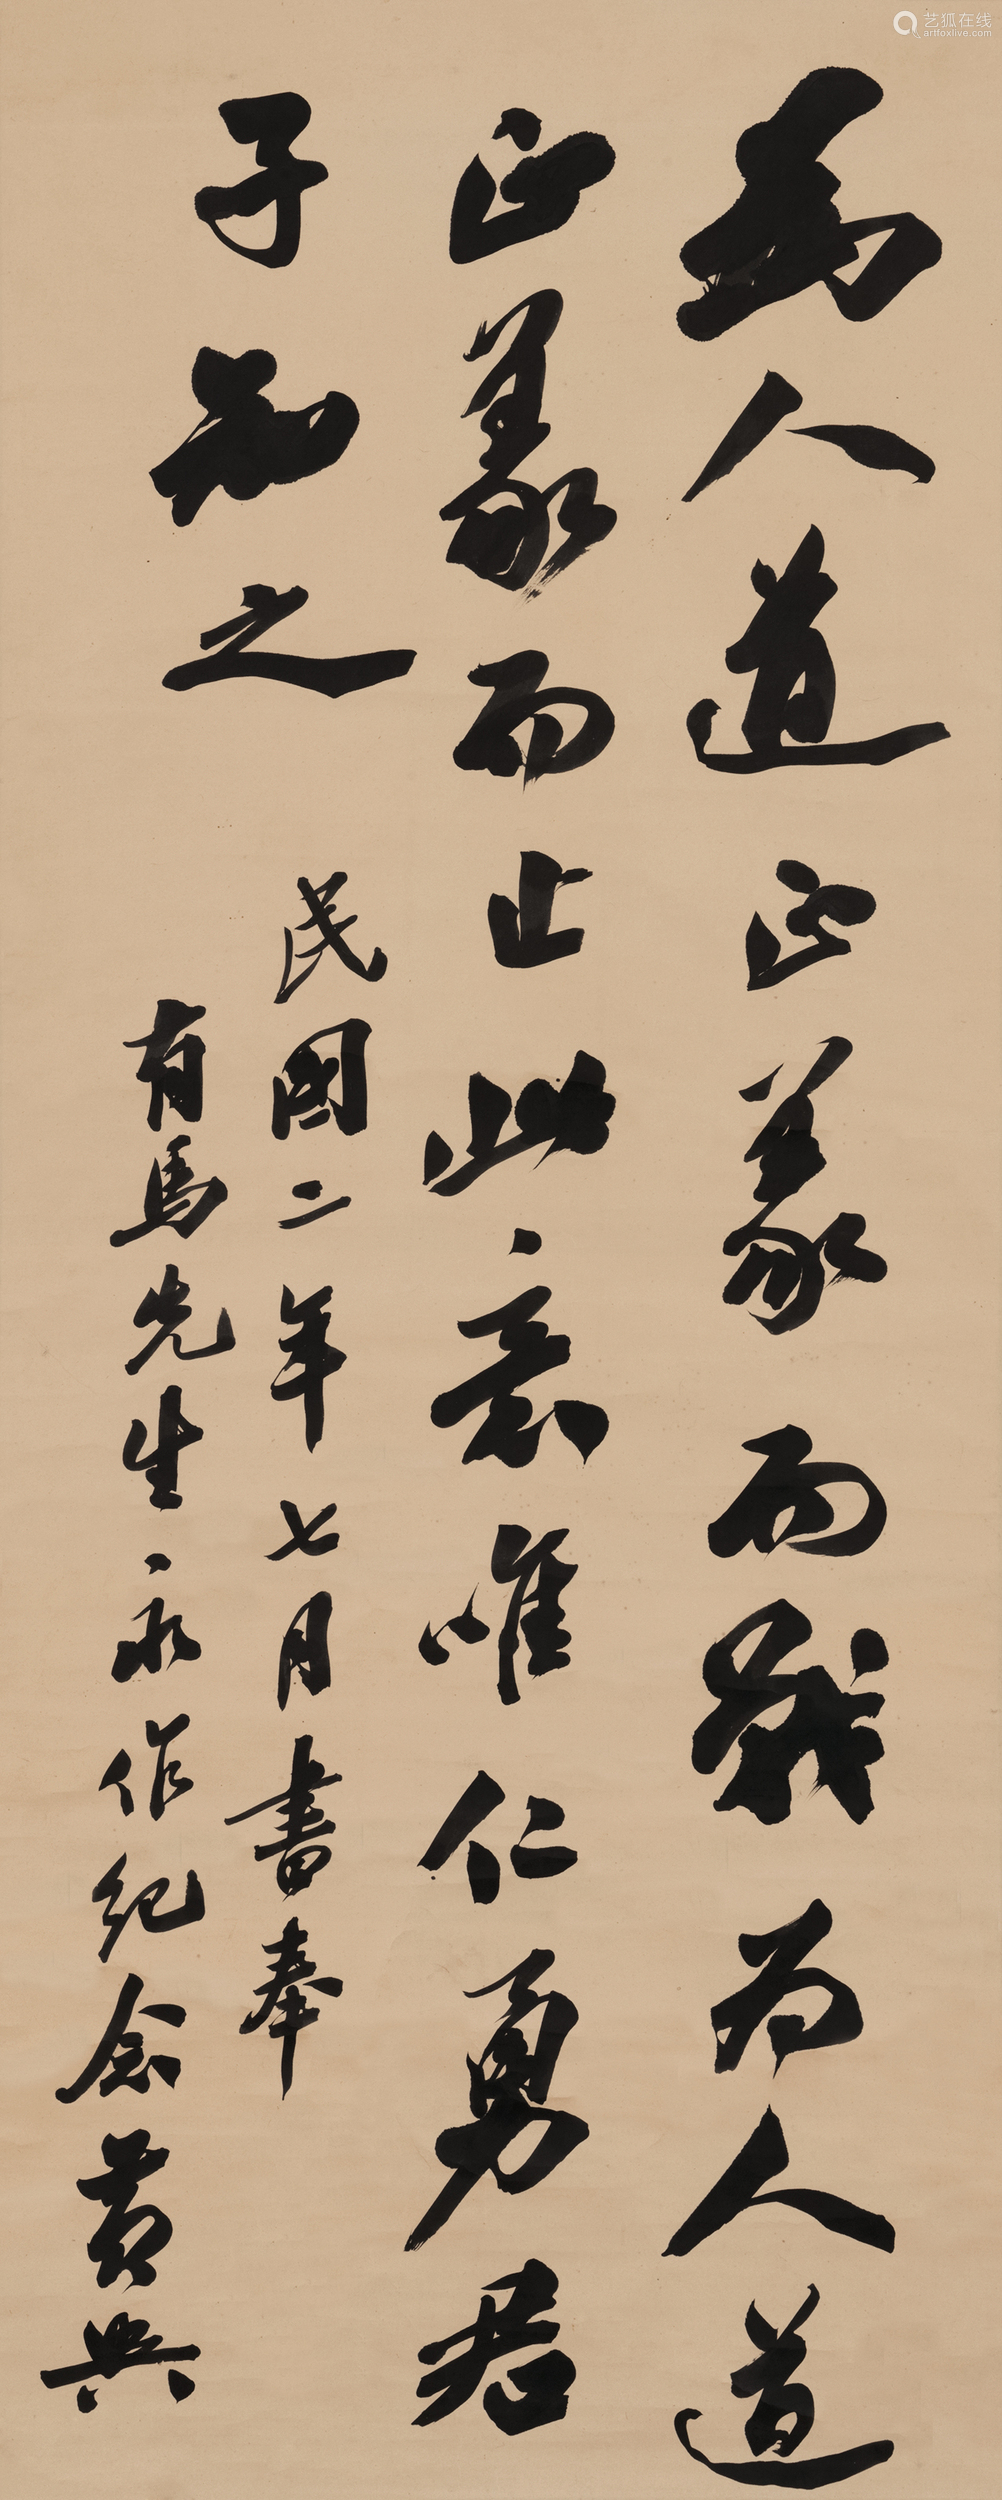 艺狐在线
artfoxlive.com
為人道正義而戰為人道
正義而止此意唯仁勇君
子知之
民國二年七月書奉
有馬先生永作紀念黃興